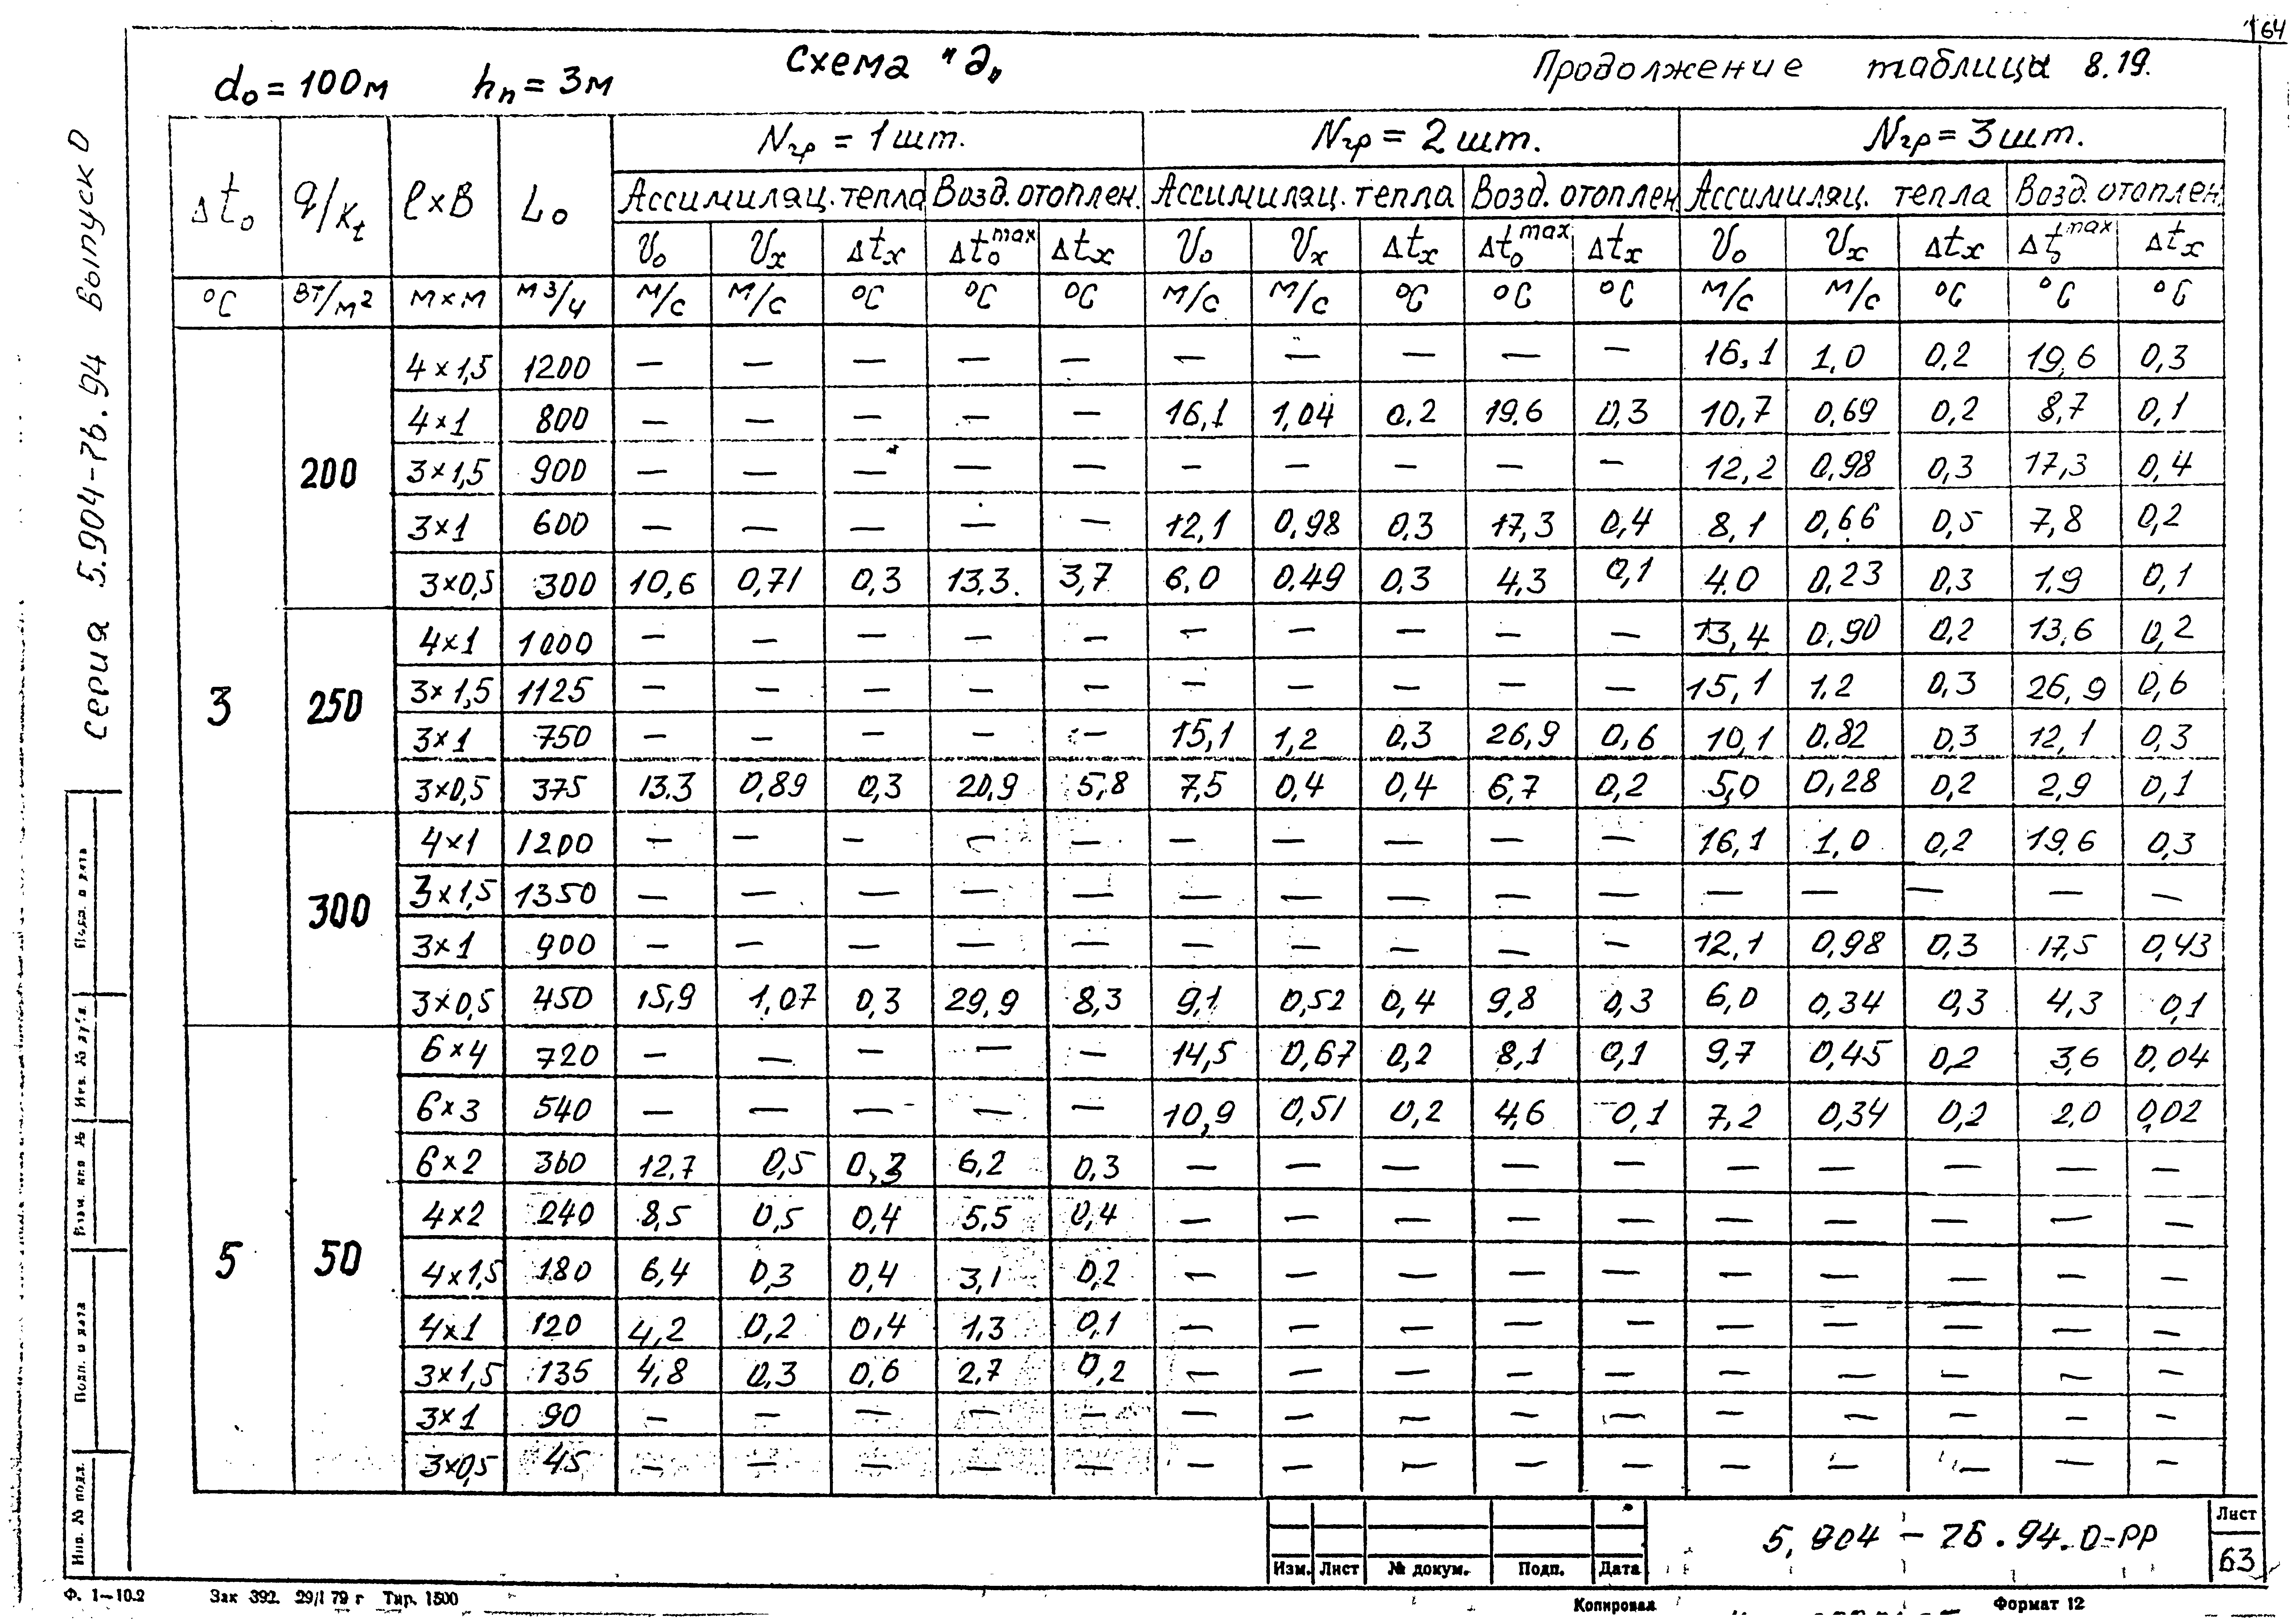 164
d₀ = 100м hп = 3м Схема "д" Продолжение таблицы 8.19.
серия 5.904-7б.94 выпуск 0
Δt₀ q/Kt ℓ×B L₀ Nгр = 1 шт. Nгр = 2 шт. Nгр = 3 шт.
Ассимиляц. тепла Возд. отоплен. Ассимиляц. тепла Возд. отоплен Ассимиляц. тепла Возд. отоплен.
V₀ Vx Δtx Δt₀max Δtx V₀ Vx Δtx Δt₀max Δtx V₀ Vx Δtx Δt₀max Δtx
°C Вт/м² м×м м³/ч м/с м/с °C °C °C м/с м/с °C °C °C м/с м/с °C °C °C
3
200
4×1,5 1200 — — — — — — — — — — 16,1 1,0 0,2 19,6 0,3
4×1 800 — — — — — 16,1 1,04 0,2 19.6 0,3 10,7 0,69 0,2 8,7 0,1
3×1,5 900 — — — — — — — — — — 12,2 0,98 0,3 17,3 0,4
3×1 600 — — — — — 12,1 0,98 0,3 17,3 0,4 8,1 0,66 0,5 7,8 0,2
3×0,5 300 10,6 0,71 0,3 13,3. 3,7 6,0 0,49 0,3 4,3 0,1 4.0 0,23 0,3 1,9 0,1
250
4×1 1000 — — — — — — — — — — 13,4 0,90 0,2 13,6 0,2
3×1,5 1125 — — — — — — — — — — 15,1 1.2 0,3 26,9 0,6
3×1 750 — — — — — 15,1 1,2 0,3 26,9 0,6 10,1 0.82 0,3 12,1 0,3
3×0,5 375 13.3 0,89 0,3 20,9 5,8 7,5 0,4 0,4 6,7 0,2 5,0 0,28 0,2 2,9 0,1
300
4×1 1200 — — — — — — — — — — 16,1 1,0 0,2 19,6 0,3
3×1,5 1350 — — — — — — — — — — — — — — —
3×1 900 — — — — — — — — — — 12,1 0,98 0,3 17,5 0,43
3×0,5 450 15,9 1,07 0,3 29,9 8,3 9,1 0,52 0,4 9,8 0,3 6,0 0,34 0,3 4,3 0,1
5
50
6×4 720 — — — — — 14,5 0,67 0,2 8,1 0,1 9,7 0,45 0,2 3,6 0,04
6×3 540 — — — — — 10,9 0,51 0,2 4,6 0,1 7,2 0,34 0,2 2,0 0,02
6×2 360 12,7 0,5 0,3 6,2 0,3 — — — — — — — — — —
4×2 240 8,5 0,5 0,4 5,5 0,4 — — — — — — — — — —
4×1,5 180 6,4 0,3 0,4 3,1 0,2 — — — — — — — — — —
4×1 120 4,2 0,2 0,4 1,3 0,1 — — — — — — — — — —
3×1,5 135 4,8 0,3 0,6 2,7 0,2 — — — — — — — — — —
3×1 90 — — — — — — — — — — — — — — —
3×0,5 45 — — — — — — — — — — — — — — —
Подп. и дата
Инв. № дубл.
Взам. инв. №
Подп. и дата
Инв. № подл.
Изм. Лист № докум. Подп. Дата
5,904 - 76.94.0-РР
Лист
63
Ф. 1—10.2 Зак 392. 29/I 79 г Тир. 1500 Копировал Формат 12